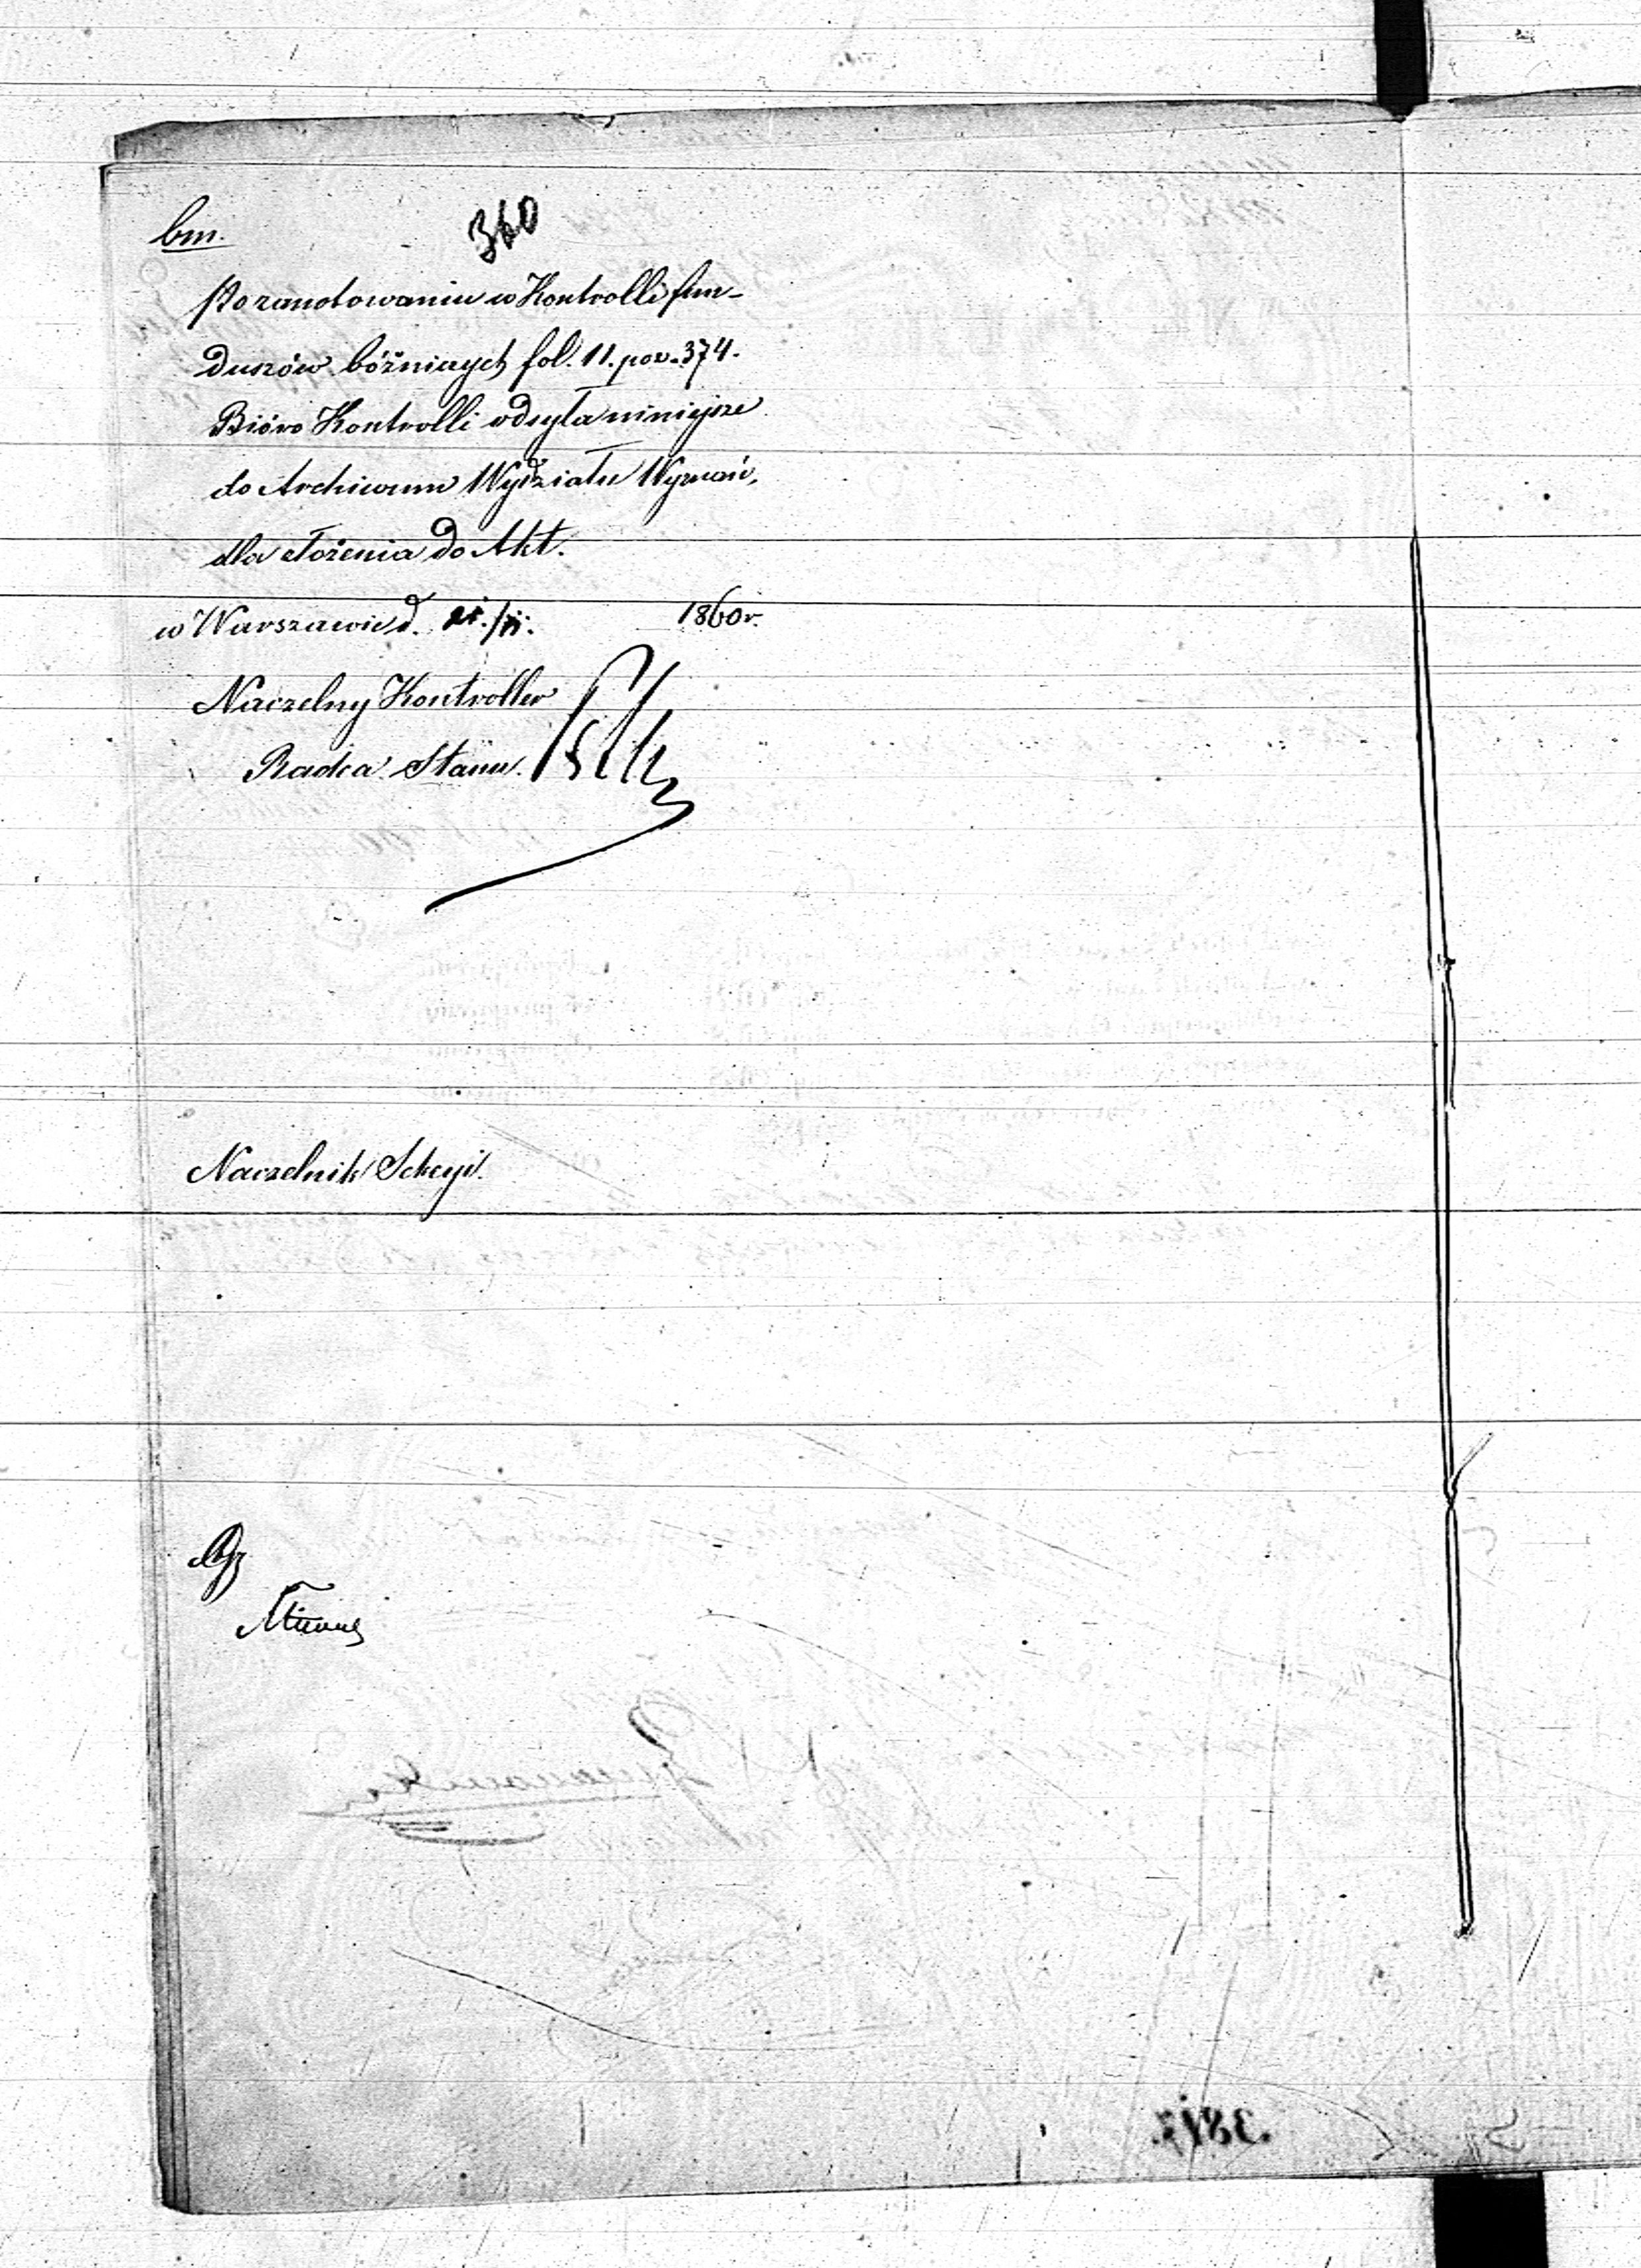 bm.
360
Po zanotowaniu w Kontrolli fun-
duszów bóżniczych fol. 11. poz. 374.
Bióro Kontrolli odsyła niniejsze
do Archiwum Wydziału Wyznań,
dla złożenia do Akt.
w Warszawie d. 1860 r.
Naczelny Kontroller
Radca Stanu.
Naczelnik Sekcyi.